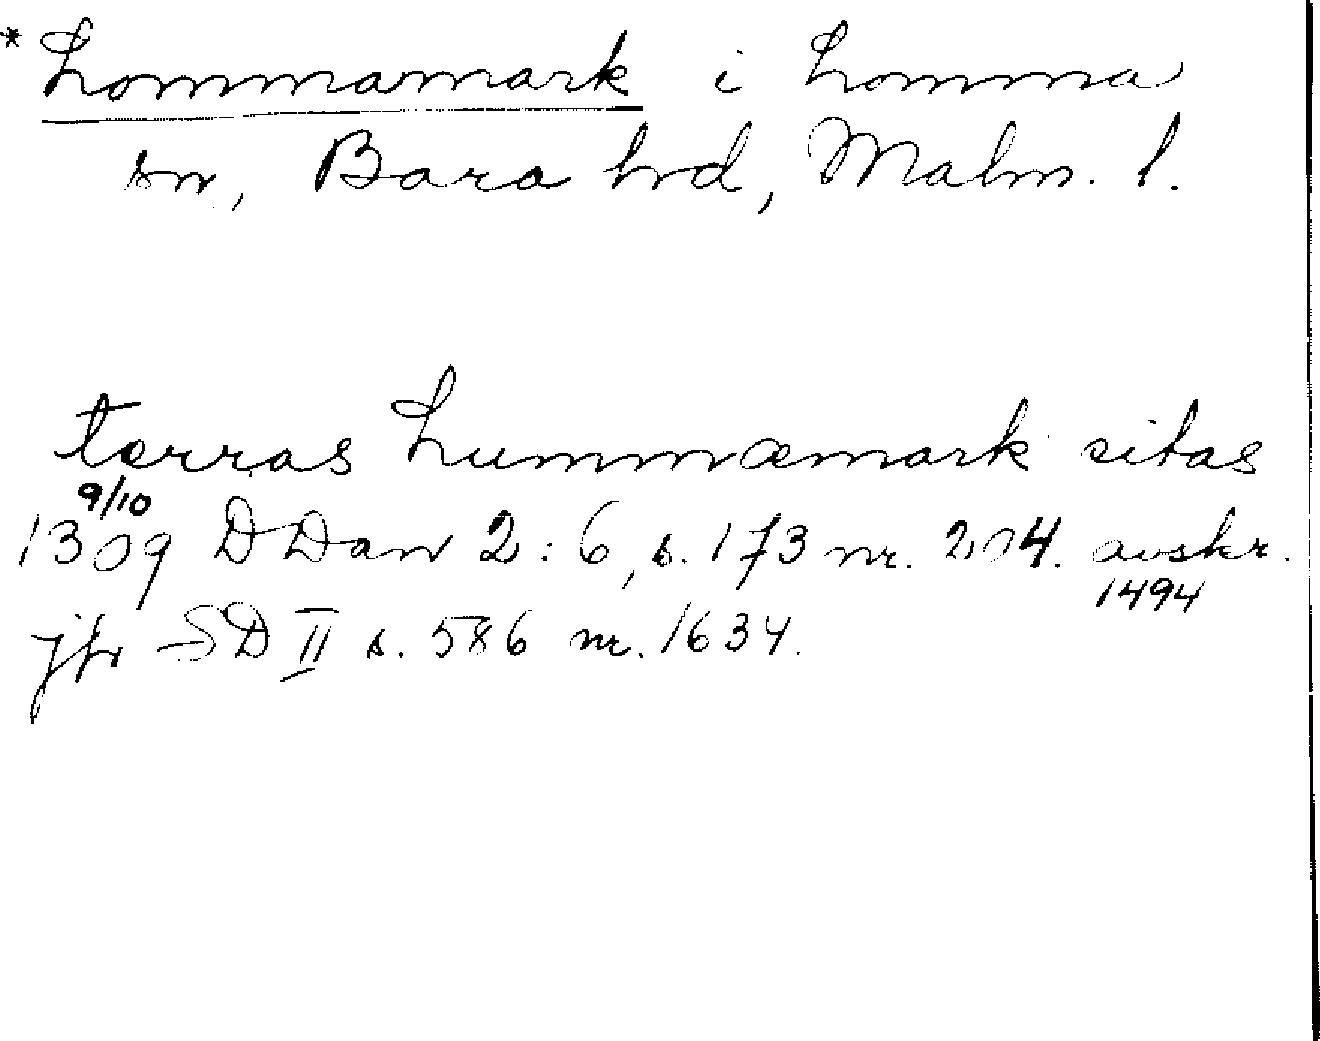 *Lommamark i Lomma
sn, Bara hd, Malm. l.
terras Lummæmark sitas
9/10
1309 DDan 2:6, s. 173 nr. 204. avskr.
1494
jfr SD II s. 586 nr. 1634.